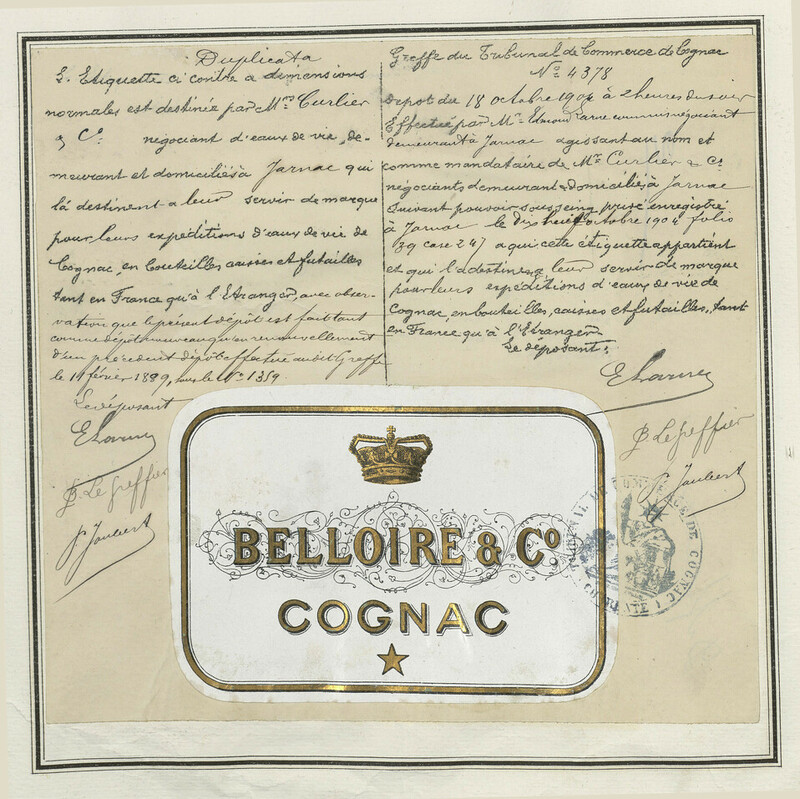 Duplicata
L'Etiquette ci contre a dimensions
normales est destinée par Mrs Curlier
& Co négociant d'eaux de vie, de-
meurant et domiciliés à Jarnac qui
la destinent a leur servir de marque
pour leurs expéditions d'eaux de vie de
Cognac, en bouteilles caisses et futailles
tant en France qu'à l'Etranger, avec obser-
vation que le présent dépôt est fait tant
comme dépôt nouveau qu'en renouvellement
d'un précédent dépôt effectué audit Greffe
le 11 février 1889, sous le No 1359
Le déposant
P. Le Greffier
P. Joubert
Greffe du Tribunal de Commerce de Cognac
No 4378
Depot du 18 octobre 1904 à 2 heures du soir
Effectué par Mr Edmond commis négociant
demeurant à Jarnac agissant au nom et
comme mandataire de Mrs Curlier & Co
négociants demeurant & domiciliés à Jarnac
suivant pouvoir sous seing privé enregistré
à Jarnac le dix huit octobre 1904 folio
39 case 247 a qui cette étiquette appartient
et qui l'a destinée à leur servir de marque
pour leurs expéditions d'eaux de vie de
Cognac, en bouteilles, caisses et futailles, tant
en France qu'à l'Etranger
Le déposant:
P. Le Greffier
P. Joubert
BELLOIRE & Co
COGNAC
DE COGNAC